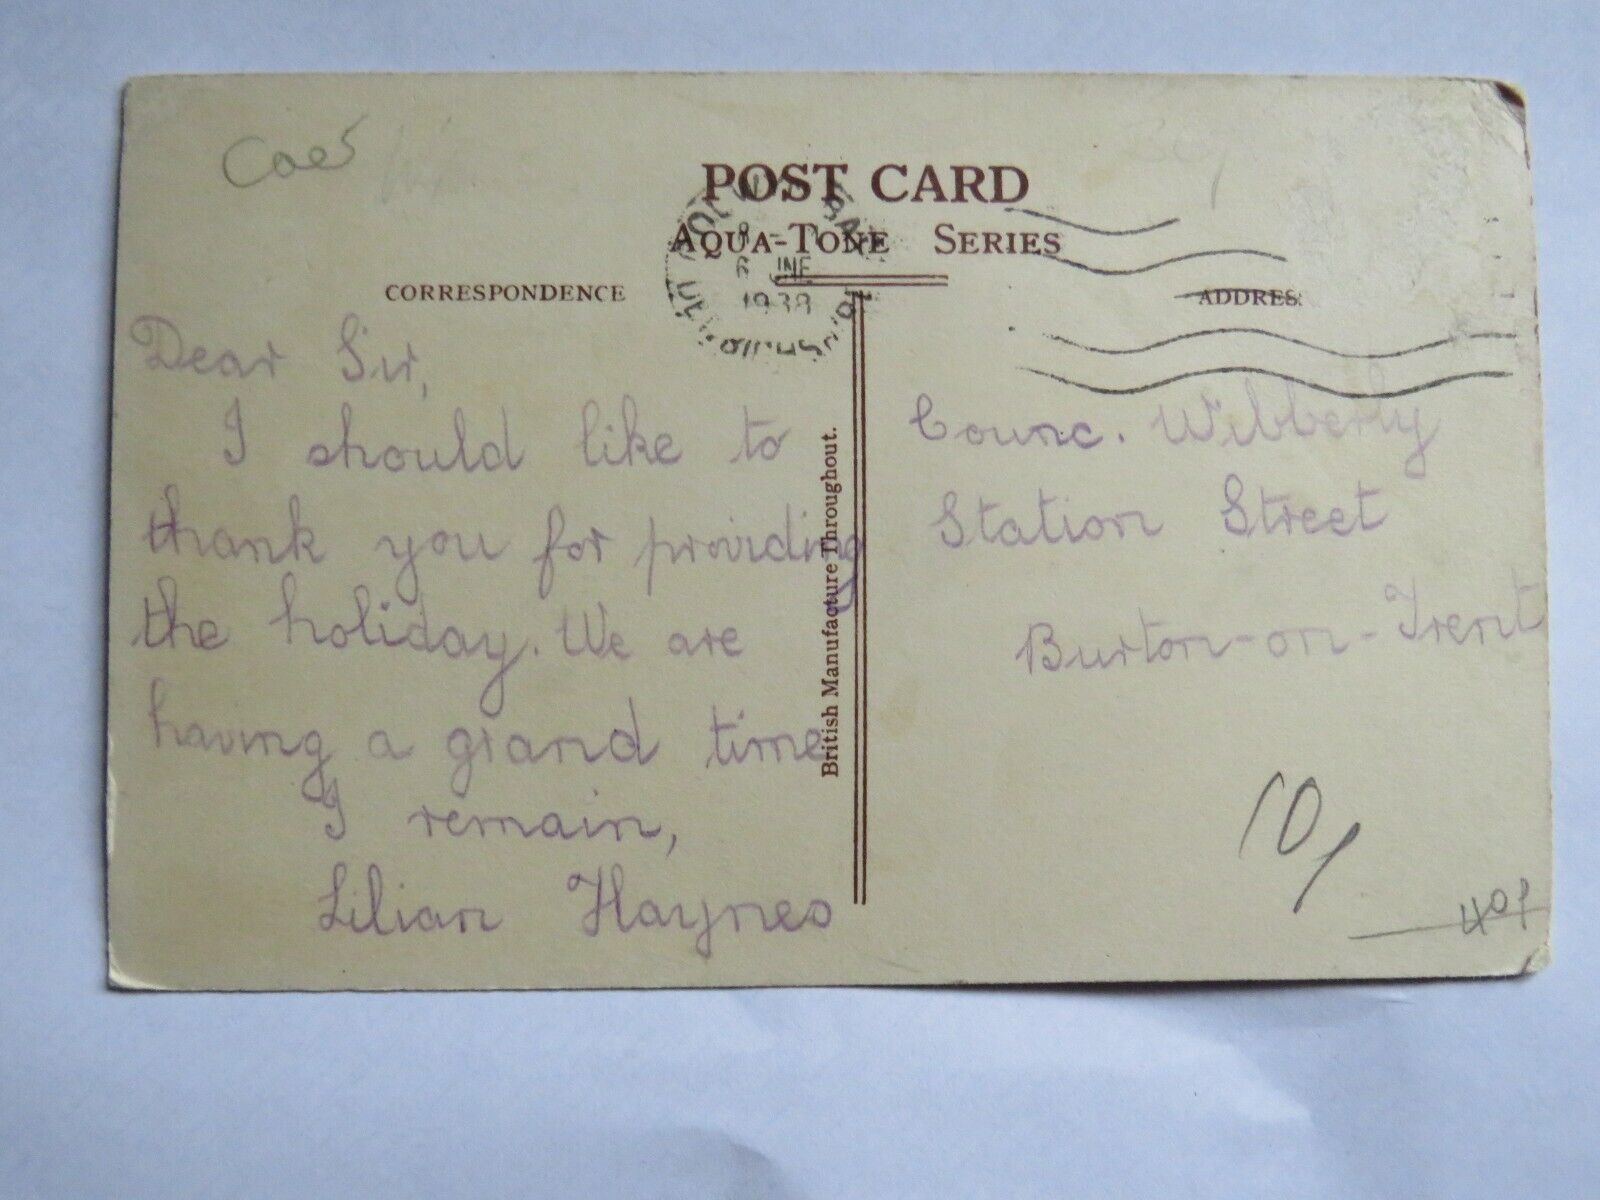 Caes
POST CARD
AQUA-TONE SERIES
CORRESPONDENCE
ADDRES
COLWYN BAY
8 -
6 JNE
1938
Dear Sir,
I should like to
thank you for providing
the holiday. We are
having a grand time
I remain,
Lilian Haynes
British Manufacture Throughout.
Counc. Wibberly
Station Street
Burton-on-Trent
10/
40p